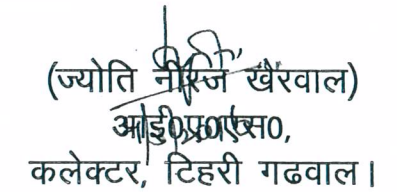 (ज्योति नीरज खैरवाल)
आई0ए0एस0,
कलेक्टर, टिहरी गढवाल।